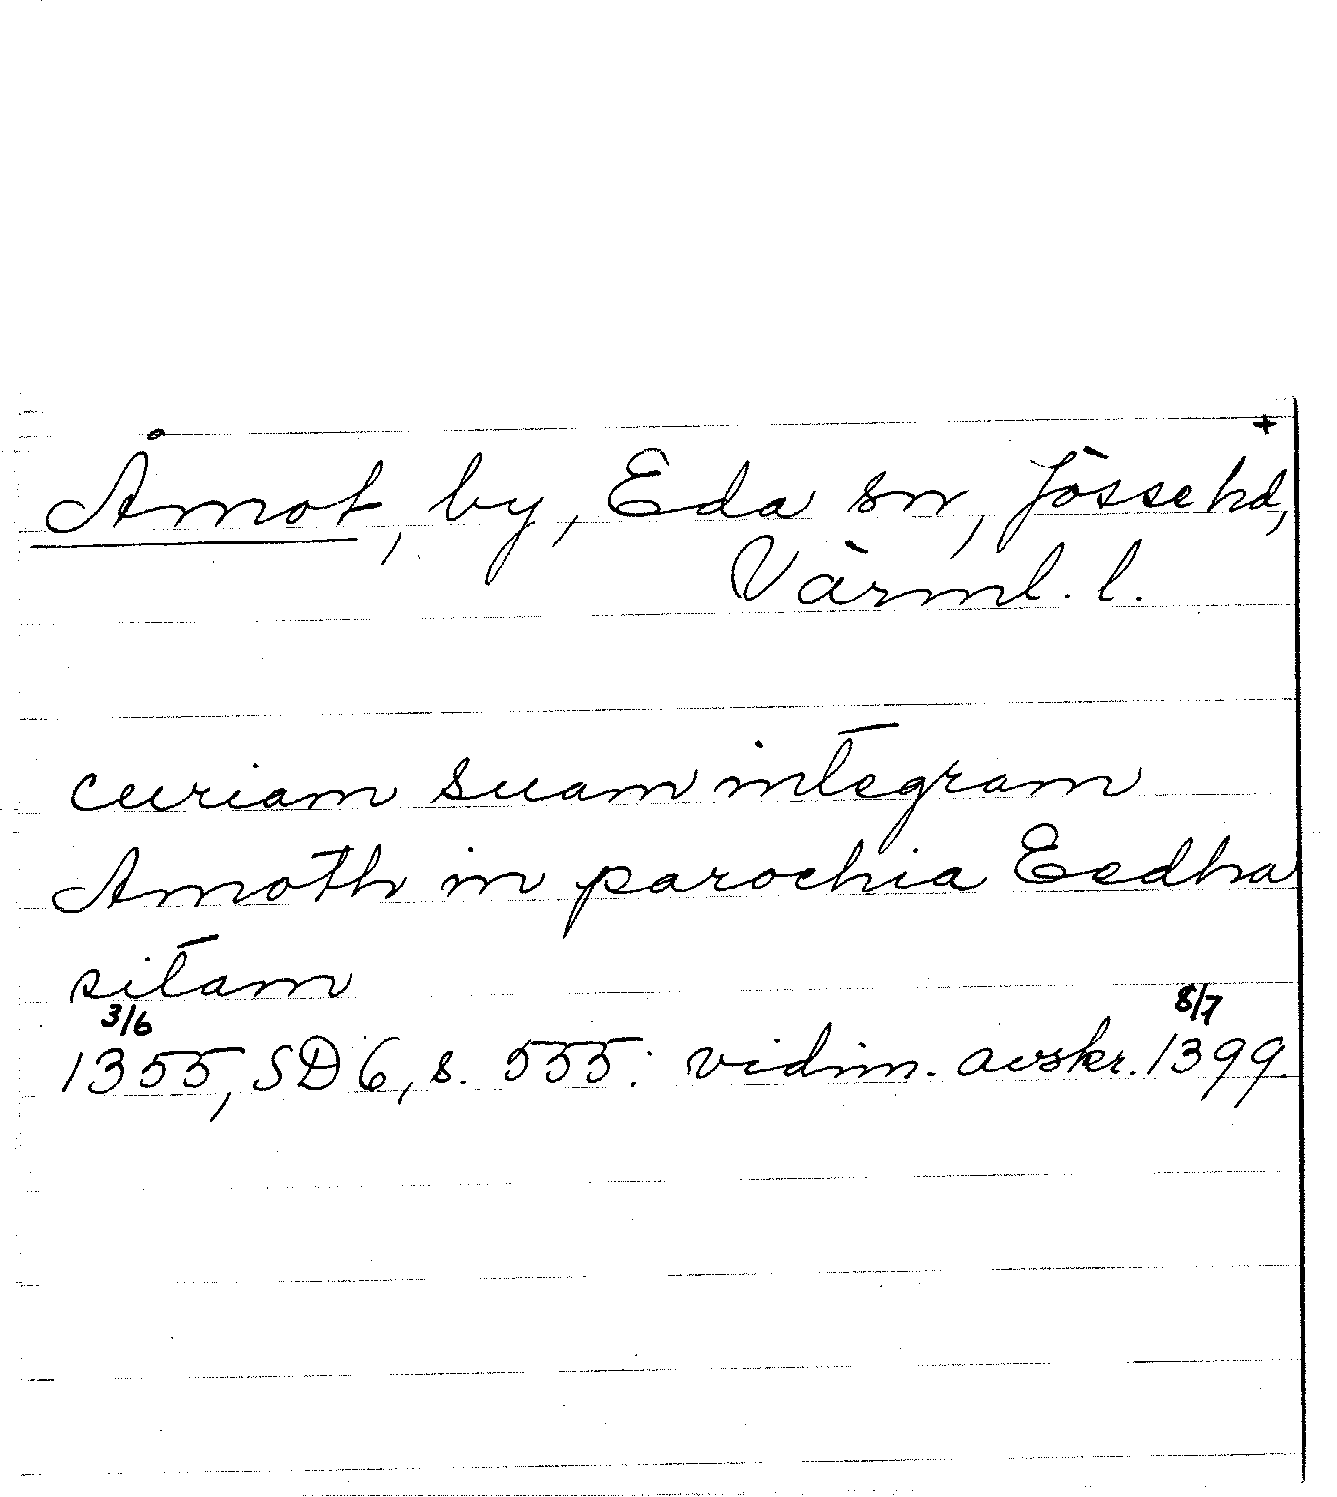 +
Åmot, by, Eda sn, Jösse hd,
Värml. l.
curiam suam integram
Amoth in parochia Eedha
sitam
3/6 8/7
1355, SD 6, s. 555: vidim. avskr. 1399.